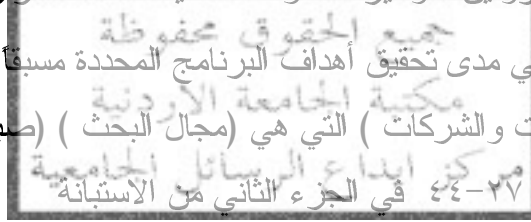 جميع الحقوق محفوظة
ي مدى تحقيق أهداف البرنامج المحددة مسبقاً
مكتبة الجامعة الأردنية
ت والشركات ) التي هي (مجال البحث ) (
مركز ايداع الرسائل الجامعية
٢٧-٤٤ في الجزء الثاني من الاستبانة